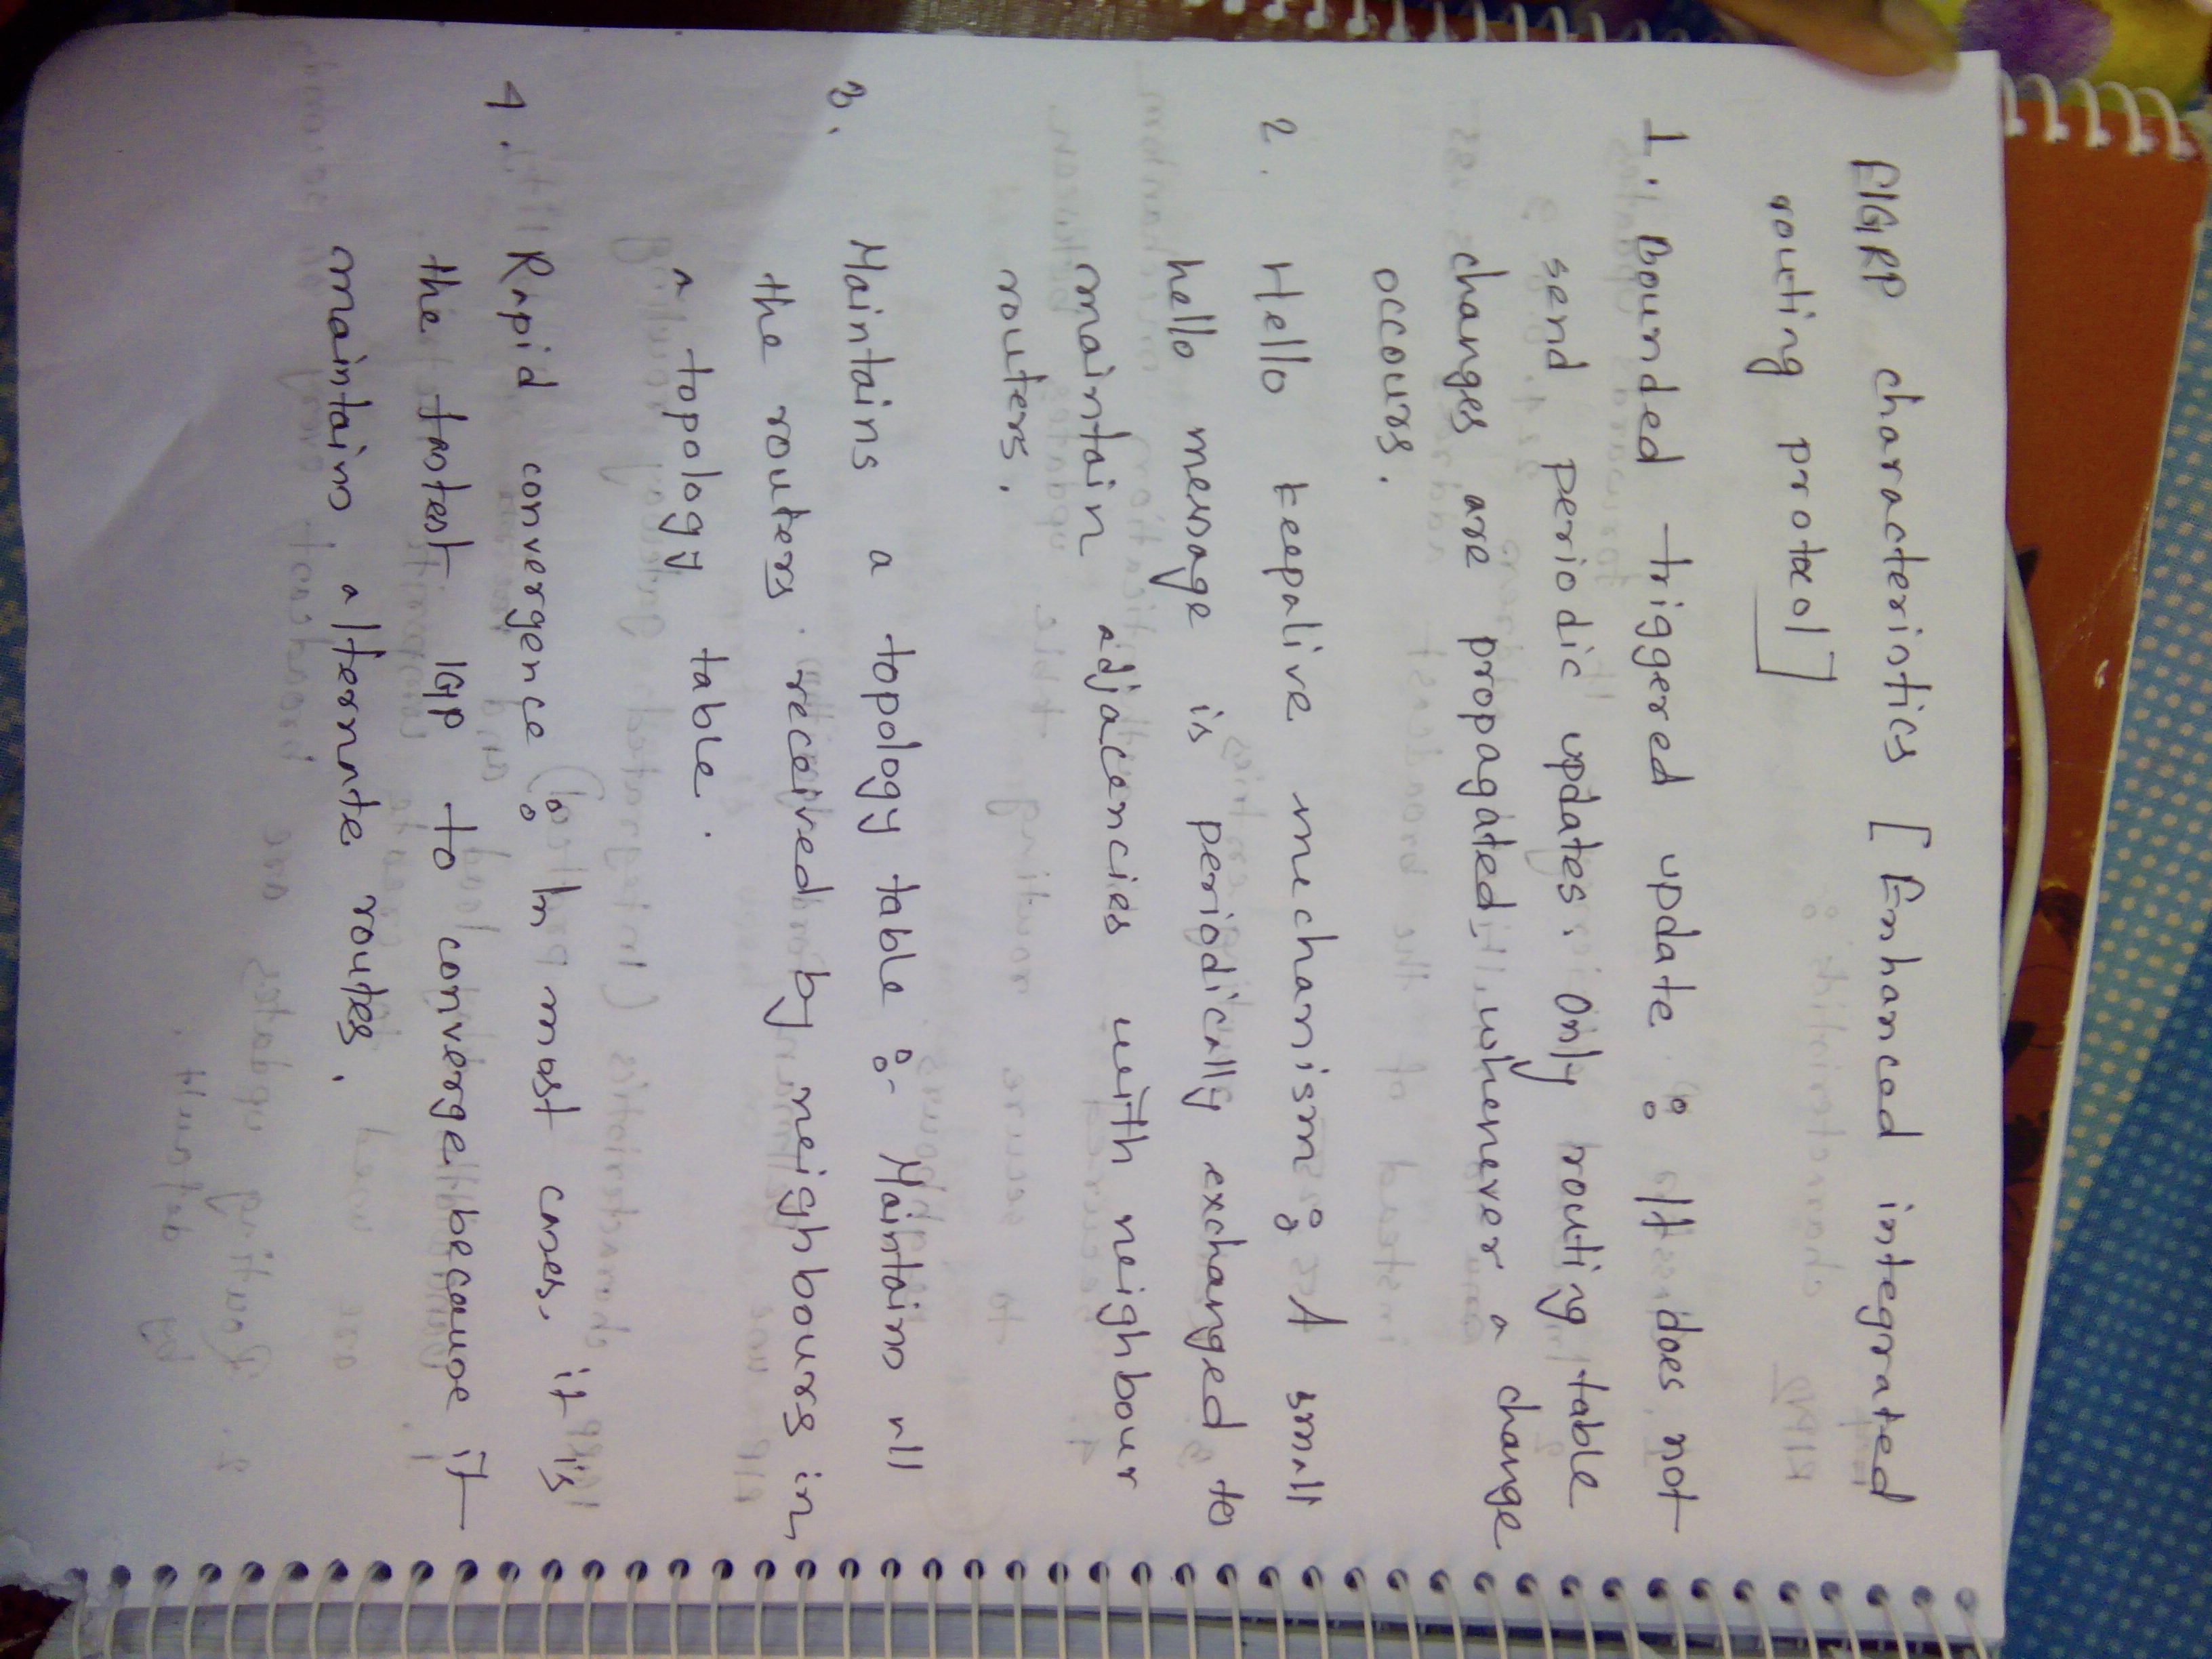 EIGRP characteristics [Enhanced integrated
routing protocol]
1. Bounded triggered update : It does not
send periodic updates. Only routing table
changes are propagated, whenever a change
occours.
2. Hello keepalive mechanism : A small
hello message is periodically exchanged to
maintain adjacencies with neighbour
routers.
3. Maintains a topology table :- Maintains all
the routers received by neighbours in
a topology table.
4. Rapid convergence : In most cases, it is
the fastest IGP to converge because it
maintains alternate routes.